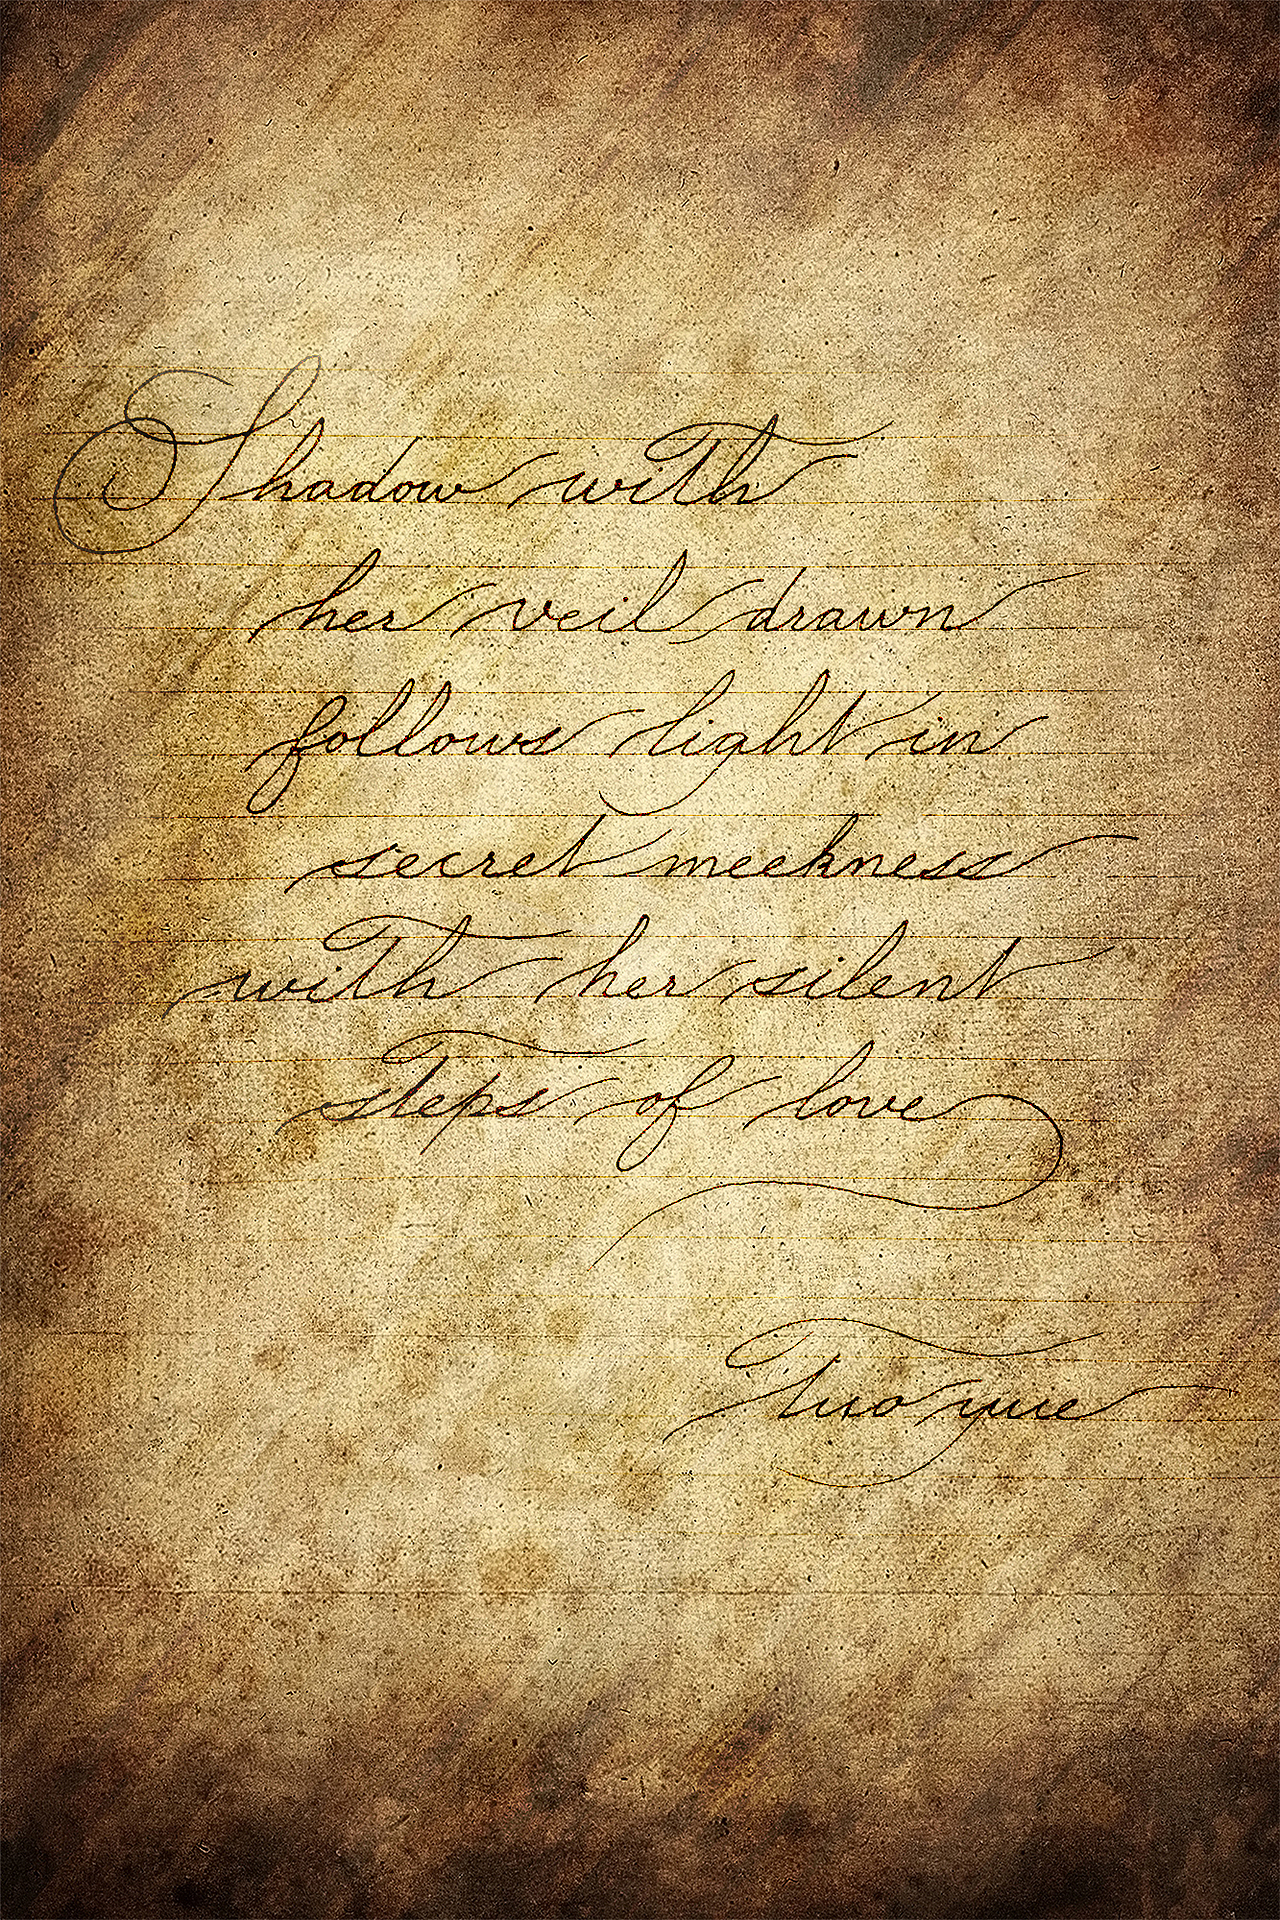 Shadow with
her veil drawn
follows light in
secret meekness
with her silent
steps of love
Tuo yue